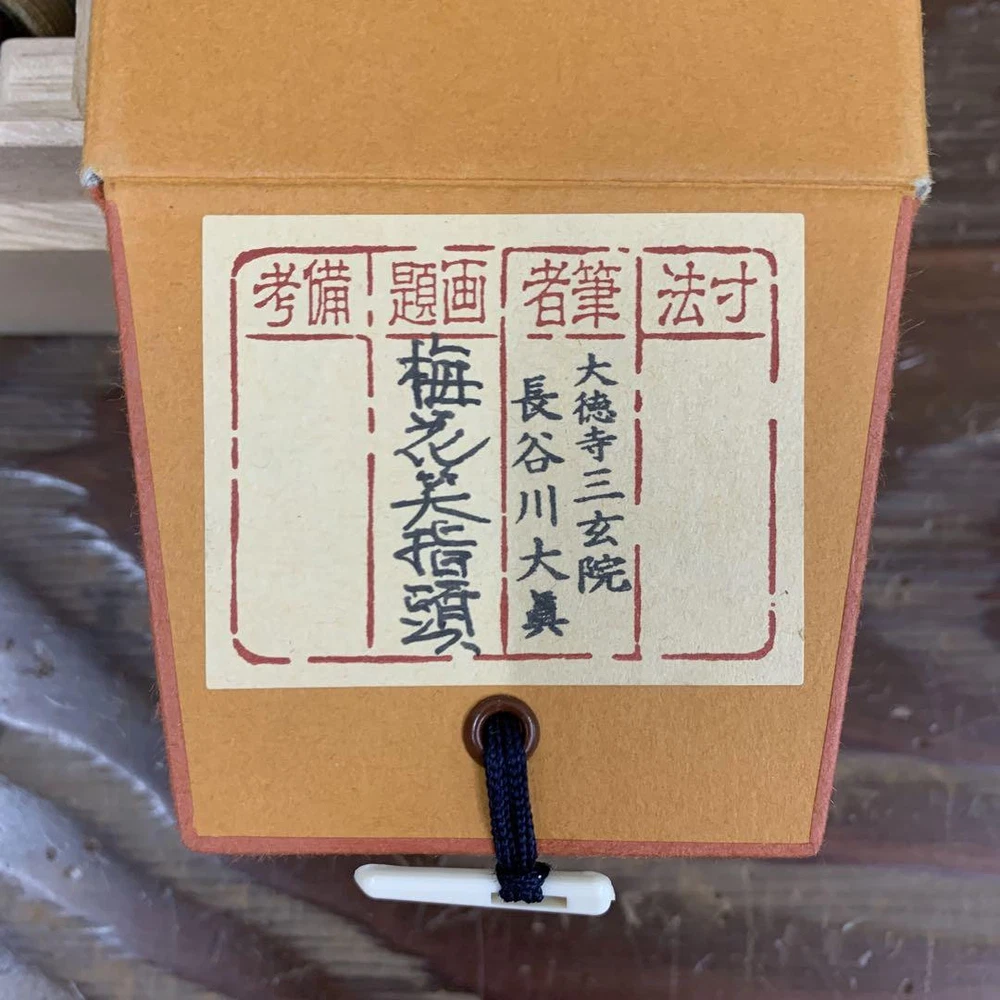 寸法
筆者
大徳寺三玄院
長谷川大眞
画題
梅花笑指
備考